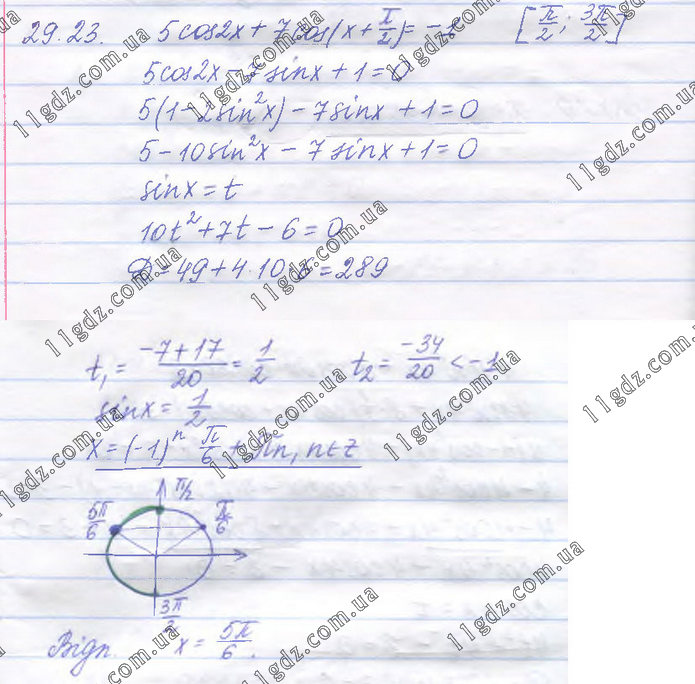 29.23. 5cos2x + 7cos(x + π/2) = -1 [π/2; 3π/2]
5cos2x - 7sinx + 1 = 0
5(1 - 2sin²x) - 7sinx + 1 = 0
5 - 10sin²x - 7sinx + 1 = 0
sinx = t
10t² + 7t - 6 = 0
D = 49 + 4·10·6 = 289
t₁ = (-7+17)/20 = 1/2 t₂ = -34/20 < -1
sinx = 1/2
x = (-1)ⁿ · π/6 + πn, n ∈ Z
π/2
5π/6 π/6
3π/2
Відп. x = 5π/6.
11gdz.com.ua